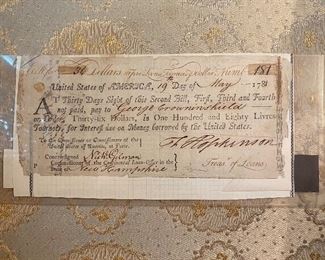 36 Dollars Numb 181
United States of AMERICA, 19 Day of May 178
AT Thirty Days Sight of this Second Bill, First, Third and Fourth
not paid, pay to George Crowninshield
or Order, Thirty-six Dollars, in One Hundred and Eighty Livres
Tournois, for Interest due on Money borrowed by the United States.
To the Commissioner or Commissioners of the
United States of America, at Paris.
F Hopkinson
Countersigned Nich Gilman
Commissioner of the Continental Loan-Office in the
State of New Hampshire
Treas. of Loans.